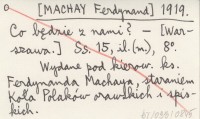 [MACHAY Ferdynand] 1919.
Co będzie z nami? — [War-
szawa.] Ss. 15, il. (m.), 8°.
Wydane pod kierow. ks.
Ferdynanda Machaya, staraniem
Koła Polaków orawskich i spis-
kich.